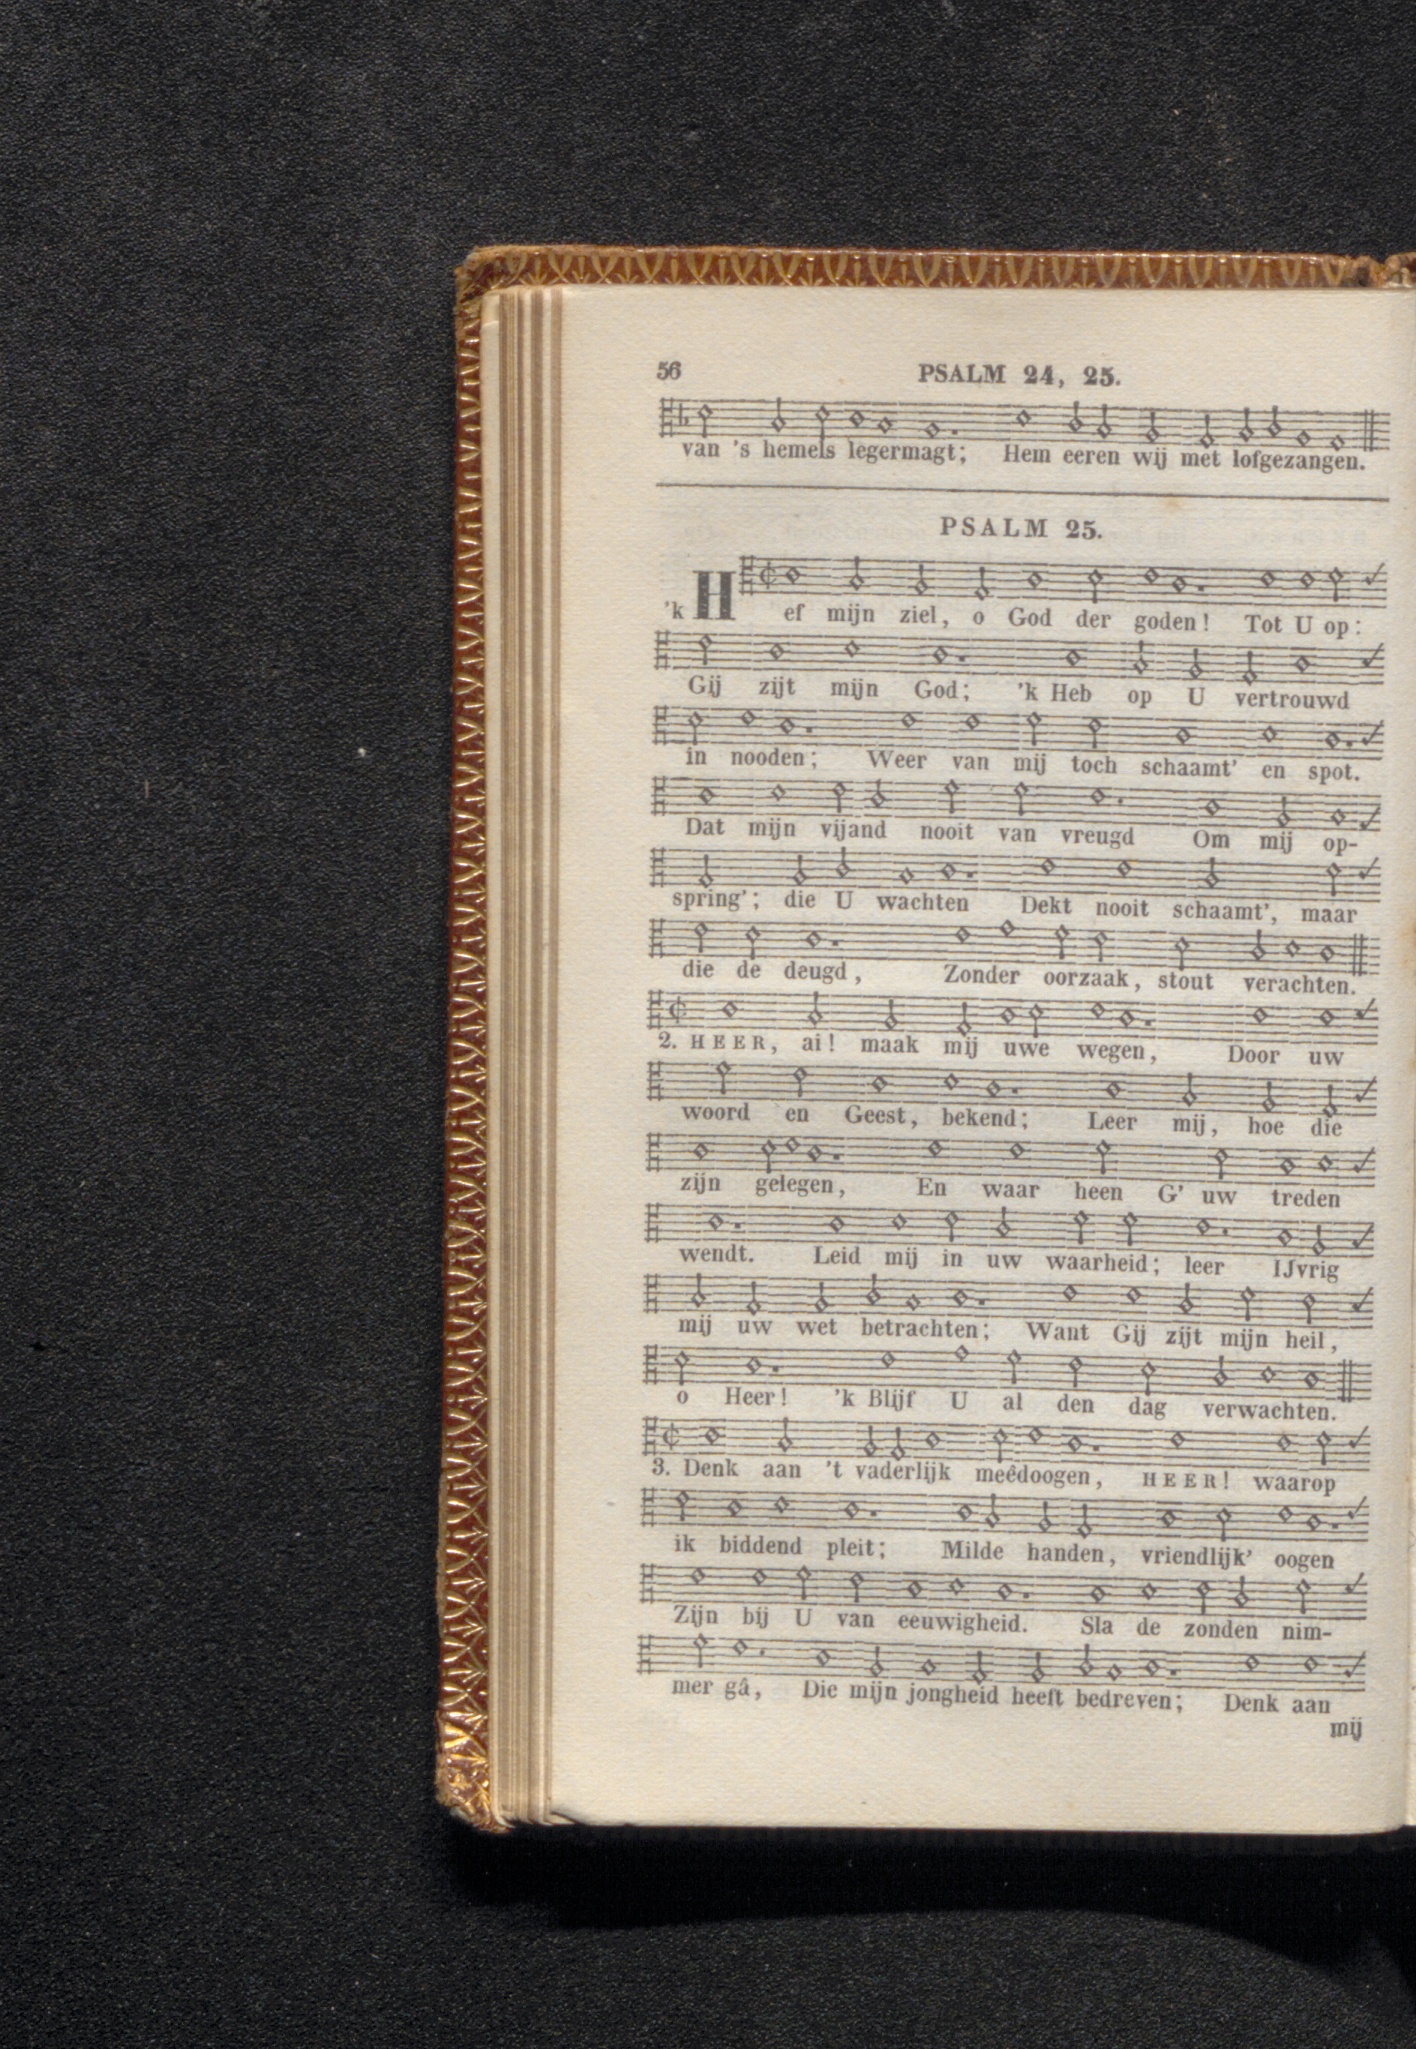 56 PSALM 24, 25.
van 's hemels legermagt; Hem eeren wij met lofgezangen.
PSALM 25.
'k Hef mijn ziel, o God der goden! Tot U op:
Gij zijt mijn God; 'k Heb op U vertrouwd
in nooden; Weer van mij toch schaamt' en spot.
Dat mijn vijand nooit van vreugd Om mij op-
spring'; die U wachten Dekt nooit schaamt', maar
die de deugd, Zonder oorzaak, stout verachten.
2. HEER, ai! maak mij uwe wegen, Door uw
woord en Geest, bekend; Leer mij, hoe die
zijn gelegen, En waar heen G' uw treden
wendt. Leid mij in uw waarheid; leer IJvrig
mij uw wet betrachten; Want Gij zijt mijn heil,
o Heer! 'k Blijf U al den dag verwachten.
3. Denk aan 't vaderlijk meêdoogen, HEER! waarop
ik biddend pleit; Milde handen, vriendlijk' oogen
Zijn bij U van eeuwigheid. Sla de zonden nim-
mer gâ, Die mijn jongheid heeft bedreven; Denk aan
mij